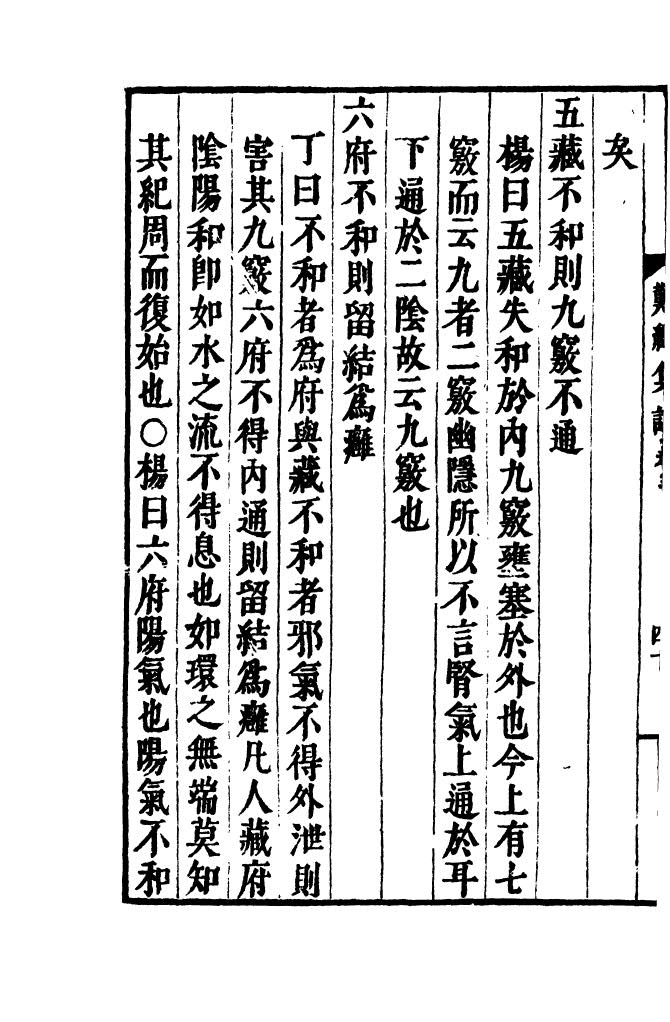 矣
五藏不和則九竅不通
楊曰五藏失和於內九竅壅塞於外也今上有七
竅而云九者二竅幽隱所以不言腎氣上通於耳
下通於二陰故云九竅也
六府不和則留結爲癰
丁曰不和者爲府與藏不和者邪氣不得外泄則
害其九竅六府不得內通則留結爲癰凡人藏府
陰陽和卽如水之流不得息也如環之無端莫知
其紀周而復始也○楊曰六府陽氣也陽氣不和